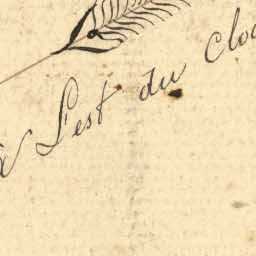 à L'est du cloc